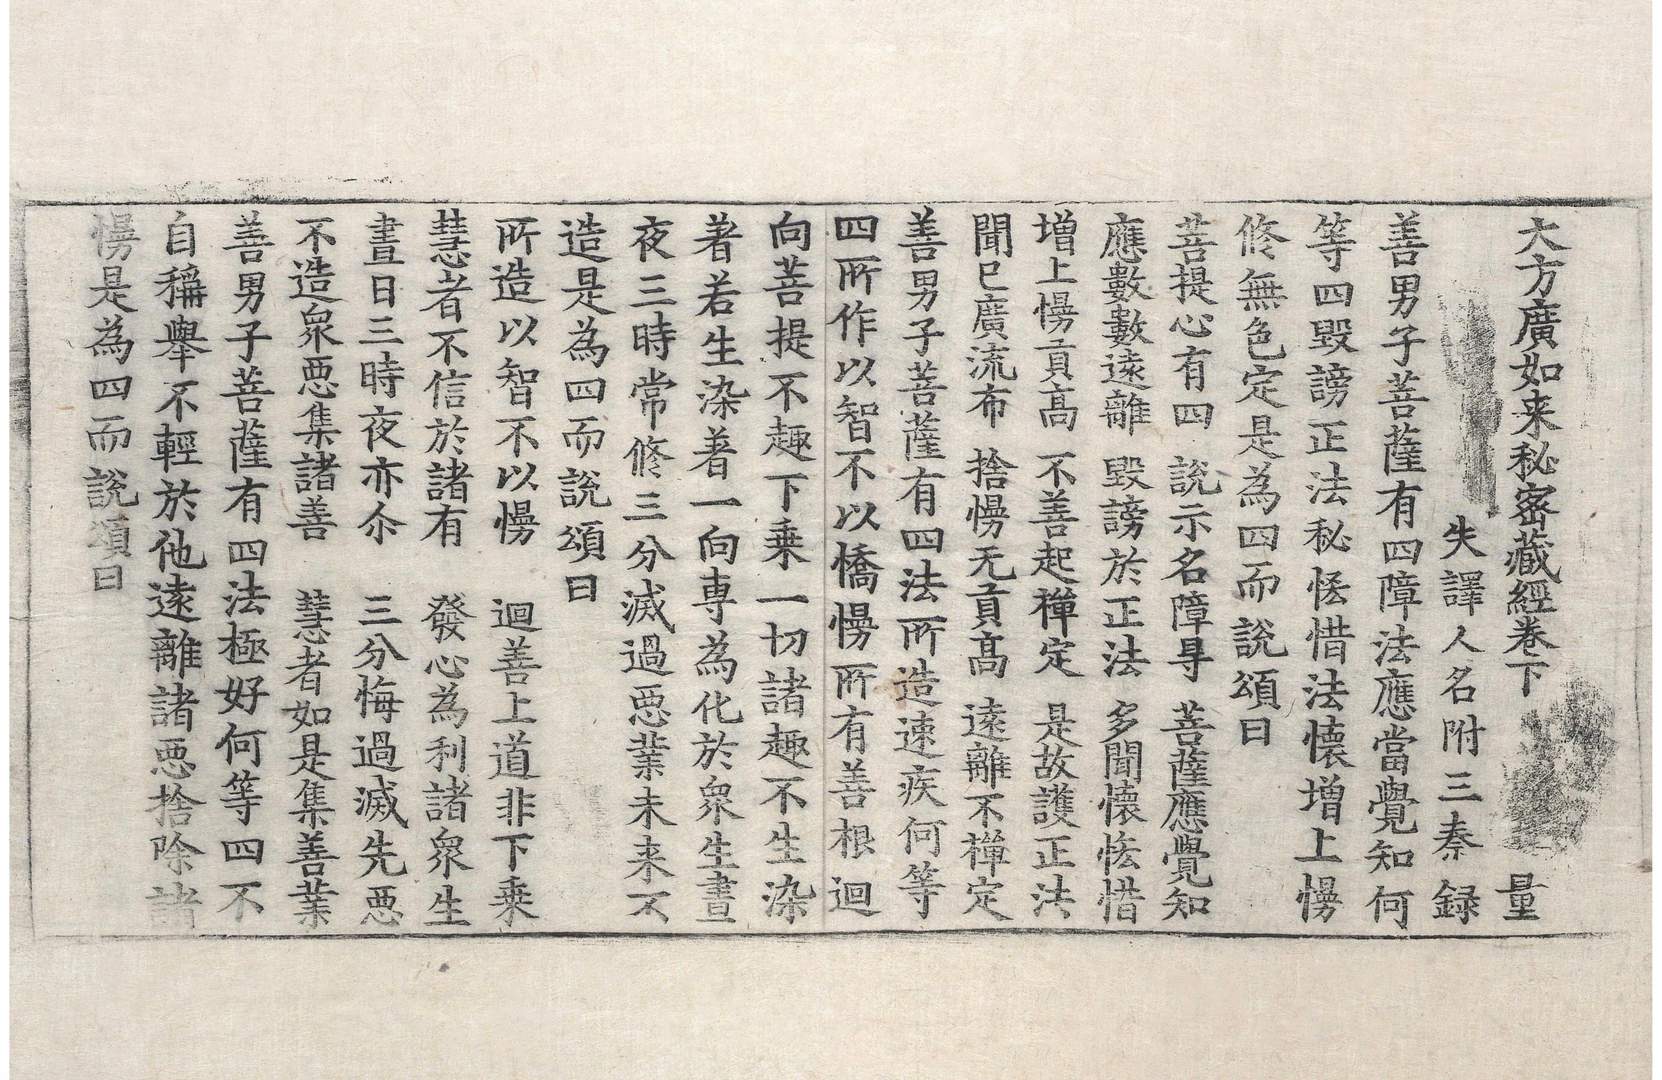 大方廣如来秘密藏經卷下 量
失譯人名附三秦録
善男子菩薩有四障法應當覺知何
等四毀謗正法秘恡惜法懷增上慢
修無色定是為四而說頌曰
菩提心有四 說示名障㝵 菩薩應覺知
應數數遠離 毀謗於正法 多聞懷恡惜
增上慢貢高 不善起禪定 是故護正法
聞已廣流布 捨慢无貢高 遠離不禪定
善男子菩薩有四法所造速疾何等
四所作以智不以憍慢所有善根迴
向菩提不趣下乗一切諸趣不生染
著若生染著一向専為化於衆生晝
夜三時常修三分滅過惡業未来不
造是為四而說頌曰
所造以智不以慢 迴善上道非下乗
慧者不信於諸有 發心為利諸衆生
晝日三時夜亦尒 三分悔過滅先惡
不造衆惡集諸善 慧者如是集善業
善男子菩薩有四法極好何等四不
自稱舉不輕於他遠離諸惡捨除諸
慢是為四而說頌曰